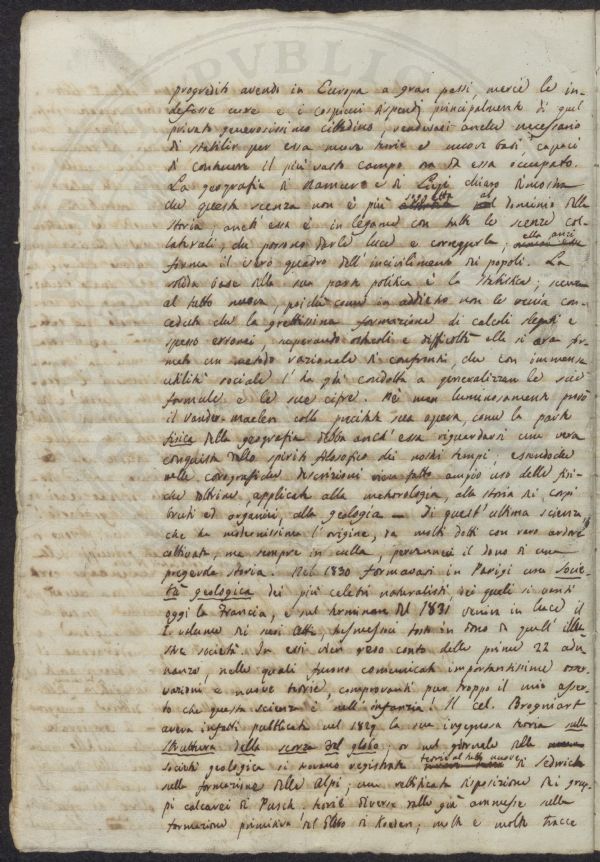 progrediti avendo in Europa a gran passi, mercè le in-
defesse cure e i cospicui dispendj principalmente di quel
privato generosissimo cittadino, rendevasi anche necessario
di stabilir per essa nuove teorie e nuove basi capaci
di contenere il più vasto campo ora da essa occupato.
La geografia di e di chiaro dimostra
che questa scienza non è più al dominio della
storia; anch'essa è in legame con tutte le scienze col-
laterali, che possono darle luce e correggerla; ella anzi
forma il vero quadro dell'incivilimento dei popoli. La
solida base della sua parte politica è la statistica; scienza
al tutto nuova, poichè come in addietro non le veniva con-
ceduta che la grettissima formazione di calcoli slegati e
spesso erronei, superando ostacoli e difficoltà ella si era for-
mata un metodo razionale di confronti, che con immensa
utilità sociale l'ha già condotta a generalizzare le sue
formule e le sue cifre. Nè men luminosamente provò
il Vander-Maelen colla precitata sua opera, come la parte
fisica della geografia debba anch'essa riguardarsi come vera
conquista dello spirito filosofico dei nostri tempi; essendochè
nelle corografiche descrizioni vien fatto ampio uso delle fisi-
che dottrine, applicate alla meteorologia, alla storia dei corpi
bruti ed organici, alla geologia — Di quest'ultima scienza
che ha modernissima l'origine, da molti dotti con raro ardore
coltivata, ma sempre in culla, pervennaci il dono di una
pregevole storia. Nel 1830 formavasi in Parigi una Socie-
tà geologica dei più celebri naturalisti, dei quali si vanti
oggi la Francia, e sul terminare del 1831 veniva in luce il
I. volume dei suoi atti, trasmessoci tosto in dono da quell'illu-
stre società. In essi vien reso conto delle prime 22 adu-
nanze, nelle quali furono comunicate importantissime osser-
vazioni e nuove teorie, comprovanti pur troppo il mio asser-
to che questa scienza è nell'infanzia. Il cel. Brogniart
aveva infatti pubblicata nel 1829 la sua ingegnosa teoria sulla
struttura della scorza del globo; or nel giornale della
società geologica si trovano registrate teorie al tutto nuove di Sedwick
sulla formazione delle Alpi; una rettificata disposizione dei grup-
pi calcarei di Pusch. teorie diverse dalle già ammesse sulla
formazione primitiva del di molte e molte tracce